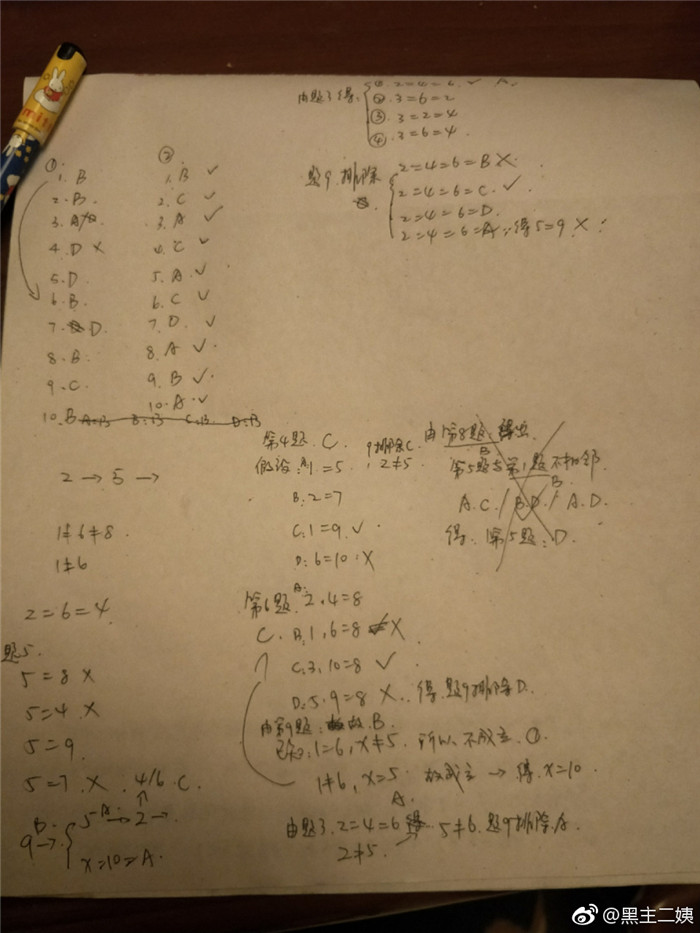 由题3得: ① 2=4=6. ✓ A.
② 3=6=2
③ 3=2=4
④ 3=6=4.
题9.排除 2=4=6=B X.
2=4=6=C. ✓.
2=4=6=D.
2=4=6=A 得5=9 X
①
1. B
2. B.
3. A
4. D X
5. D.
6. B.
7. D.
8. B.
9. C.
10. B A:B B:B C:B D:B
②
1. B ✓
2. C ✓
3. A ✓
4. C ✓
5. A. ✓
6. C ✓
7. D. ✓
8. A ✓
9. B ✓
10. A ✓
2 → 5 →
1≠6≠8.
1≠6
2=6=4
题5.
5=8 X
5=4. X
5=9.
5=7. X. 4/6. C.
B. 5 A → 2 →
9→
x=10=A.
第4题. C. 9排除C.
假设: A 1=5, 2≠5
B. 2=7
C. 1=9. ✓
D. 6=10. X
第6题 A. 2.4=8
C. B. 1, 6=8 X
C. 3, 10=8 ✓
D. 5. 9=8 X. 得.题9排除D.
由第9题: B.
已知: 1=6, x≠5. 所以.不成立. ①.
1≠6, x=5 故成立 → 得. x=10.
A.
由题3. 2=4=6 5≠6. 题9排除A.
2≠5.
由第8题.得出
B
第5题与第1题不相邻
B
A.C. / B.D. / A.D.
得: 第5题: D.
@黑主二姨